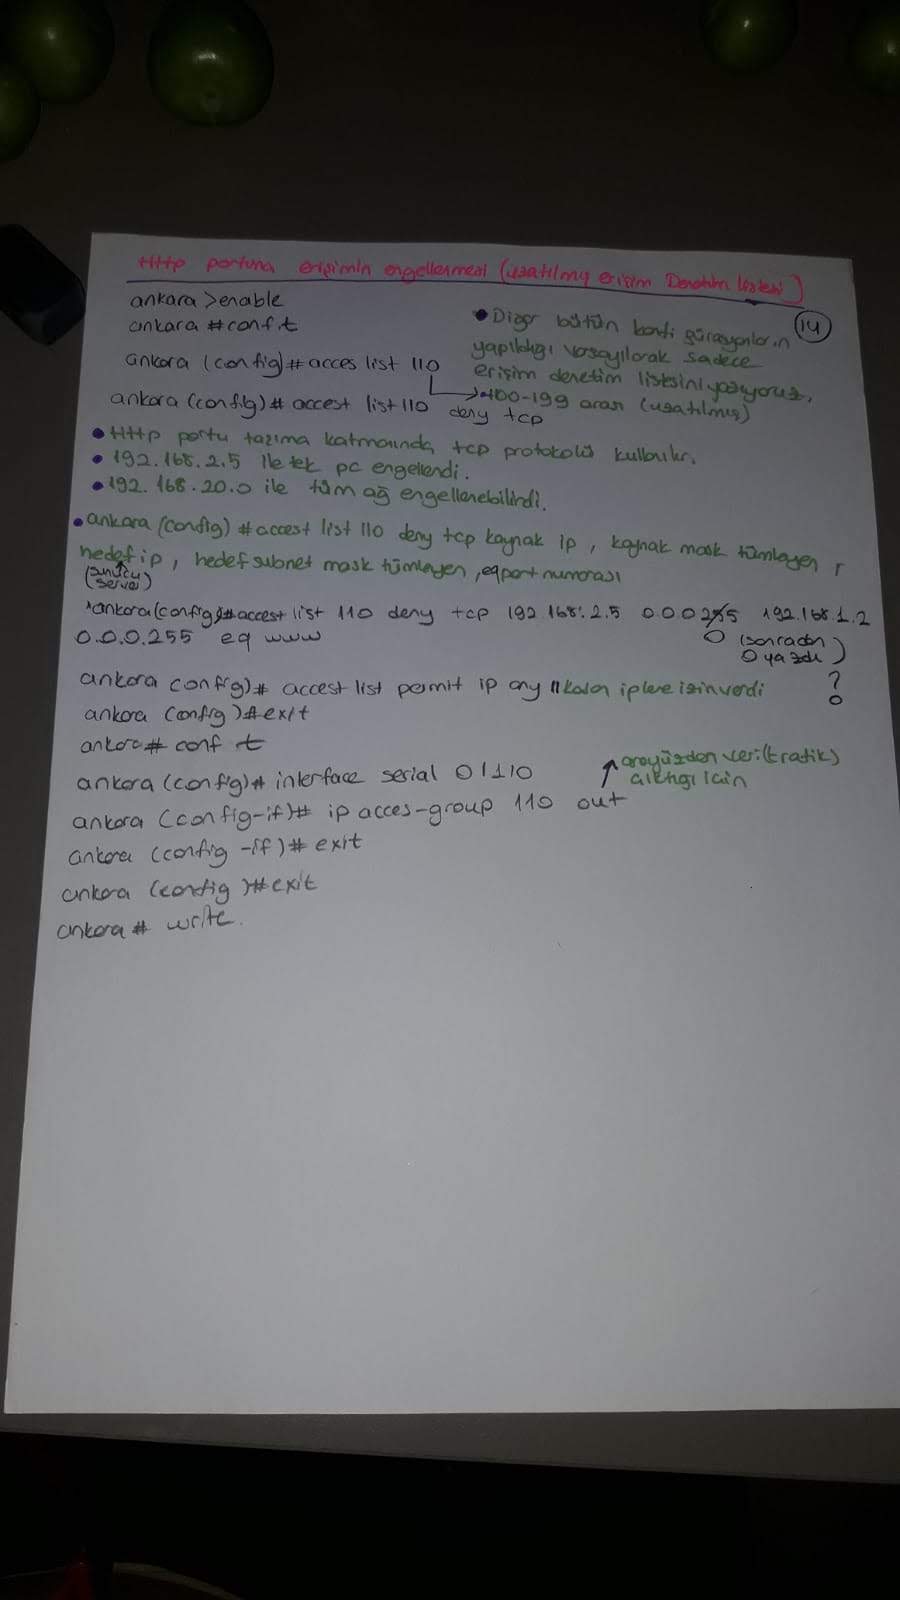 Http portuna erişimin engellenmesi (uzatılmış erişim Denetim listesi)
14
ankara >enable
ankara #conf.t
• Diğer bütün konfigürasyonların
yapıldığı varsayılarak sadece
erişim denetim listesini yazıyoruz.
ankara (config)# acces list 110
→100-199 arası (uzatılmış)
ankara (config)# accest list 110 deny tcp
• Http portu taşıma katmanında tcp protokolü kullanılır.
• 192.168.2.5 ile tek pc engellendi.
• 192.168.20.0 ile tüm ağ engellenebilirdi.
• ankara (config) #accest list 110 deny tcp kaynak ip, kaynak mask tümleyen,
hedef ip, hedef subnet mask tümleyen, eq port numarası
(sunucu
server)
*ankara(config)#accest list 110 deny tcp 192.168.2.5 0.0.0.255 192.168.1.2
0.0.0.255 eq www
0 (sonradan
0 yazdı)
?
ankara config)# accest list permit ip any "kalan iplere izin verdi
ankara (config)#exit
ankara# conf t
ankara (config)# interface serial 0/1/0
↑ arayüzden veri(trafik)
çıktığı için
ankara (config-if)# ip acces-group 110 out
ankara (config-if)# exit
ankara (config)#exit
ankara# write.